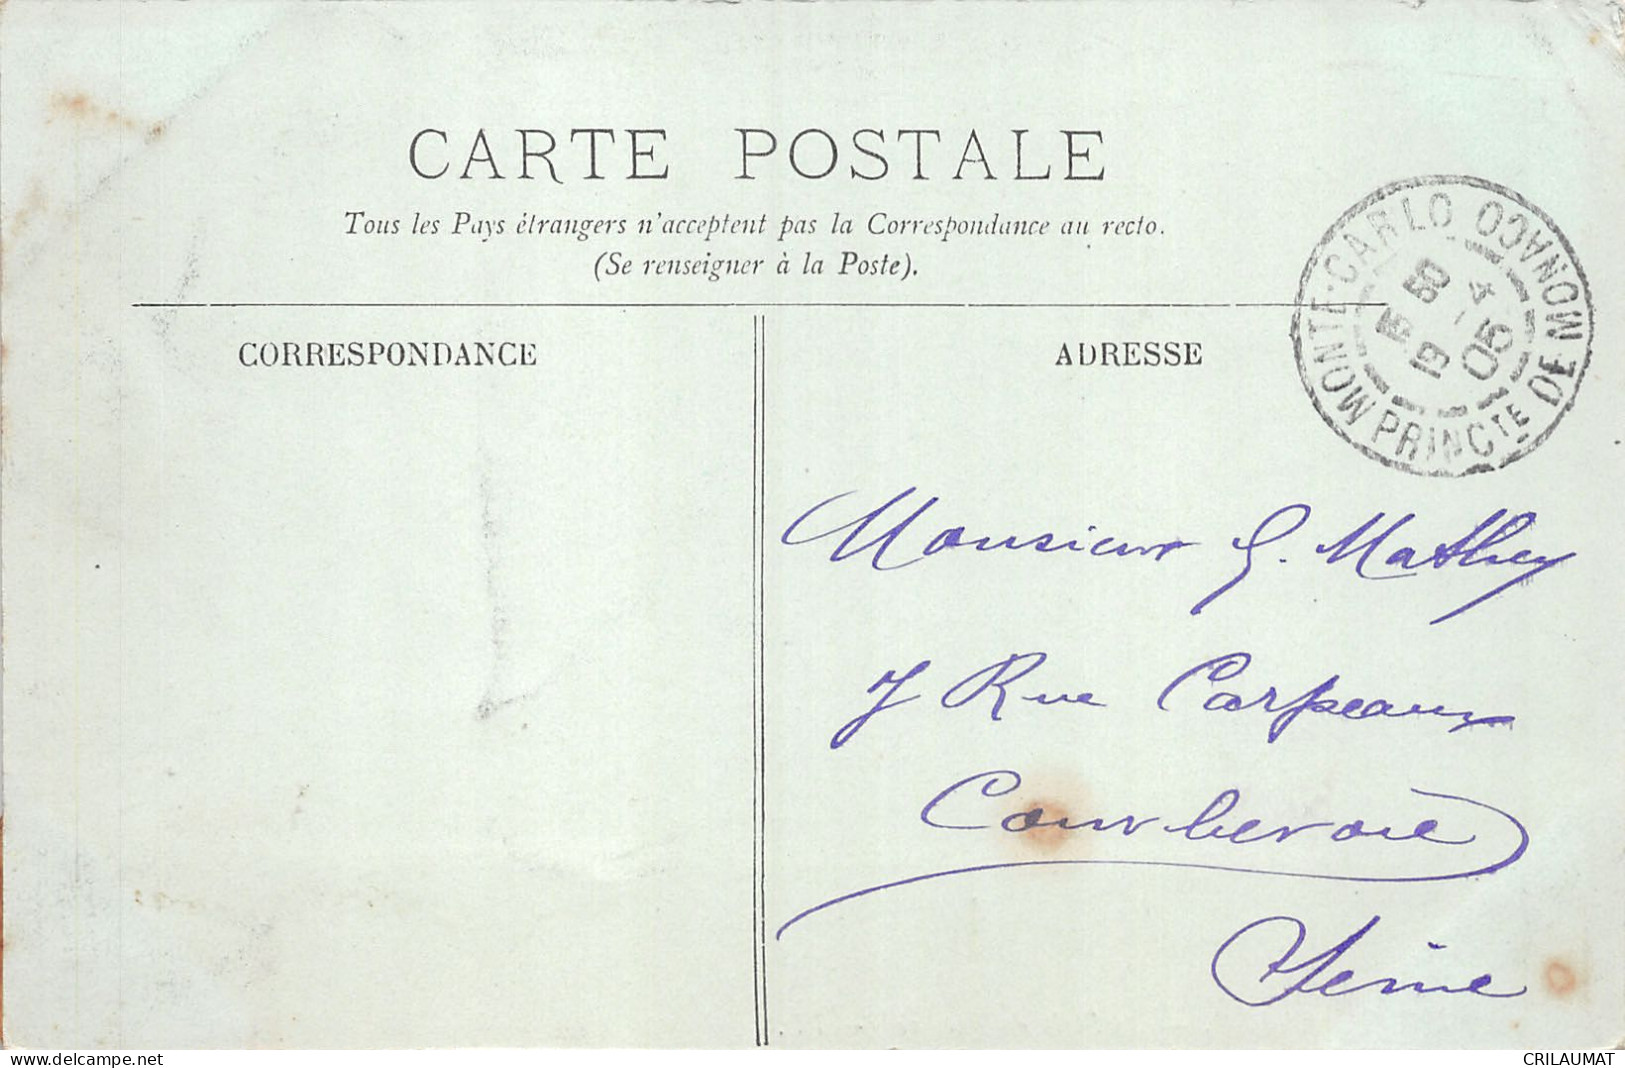 CARTE POSTALE
Tous les Pays étrangers n'acceptent pas la Correspondance au recto.
(Se renseigner à la Poste).
CORRESPONDANCE
ADRESSE
MONTE-CARLO PRINCTE DE MONACO
4 -05
Monsieur G. Mathey
7 Rue Carpeaux
Courbevoie
Seine
www.delcampe.net
CRILAUMAT